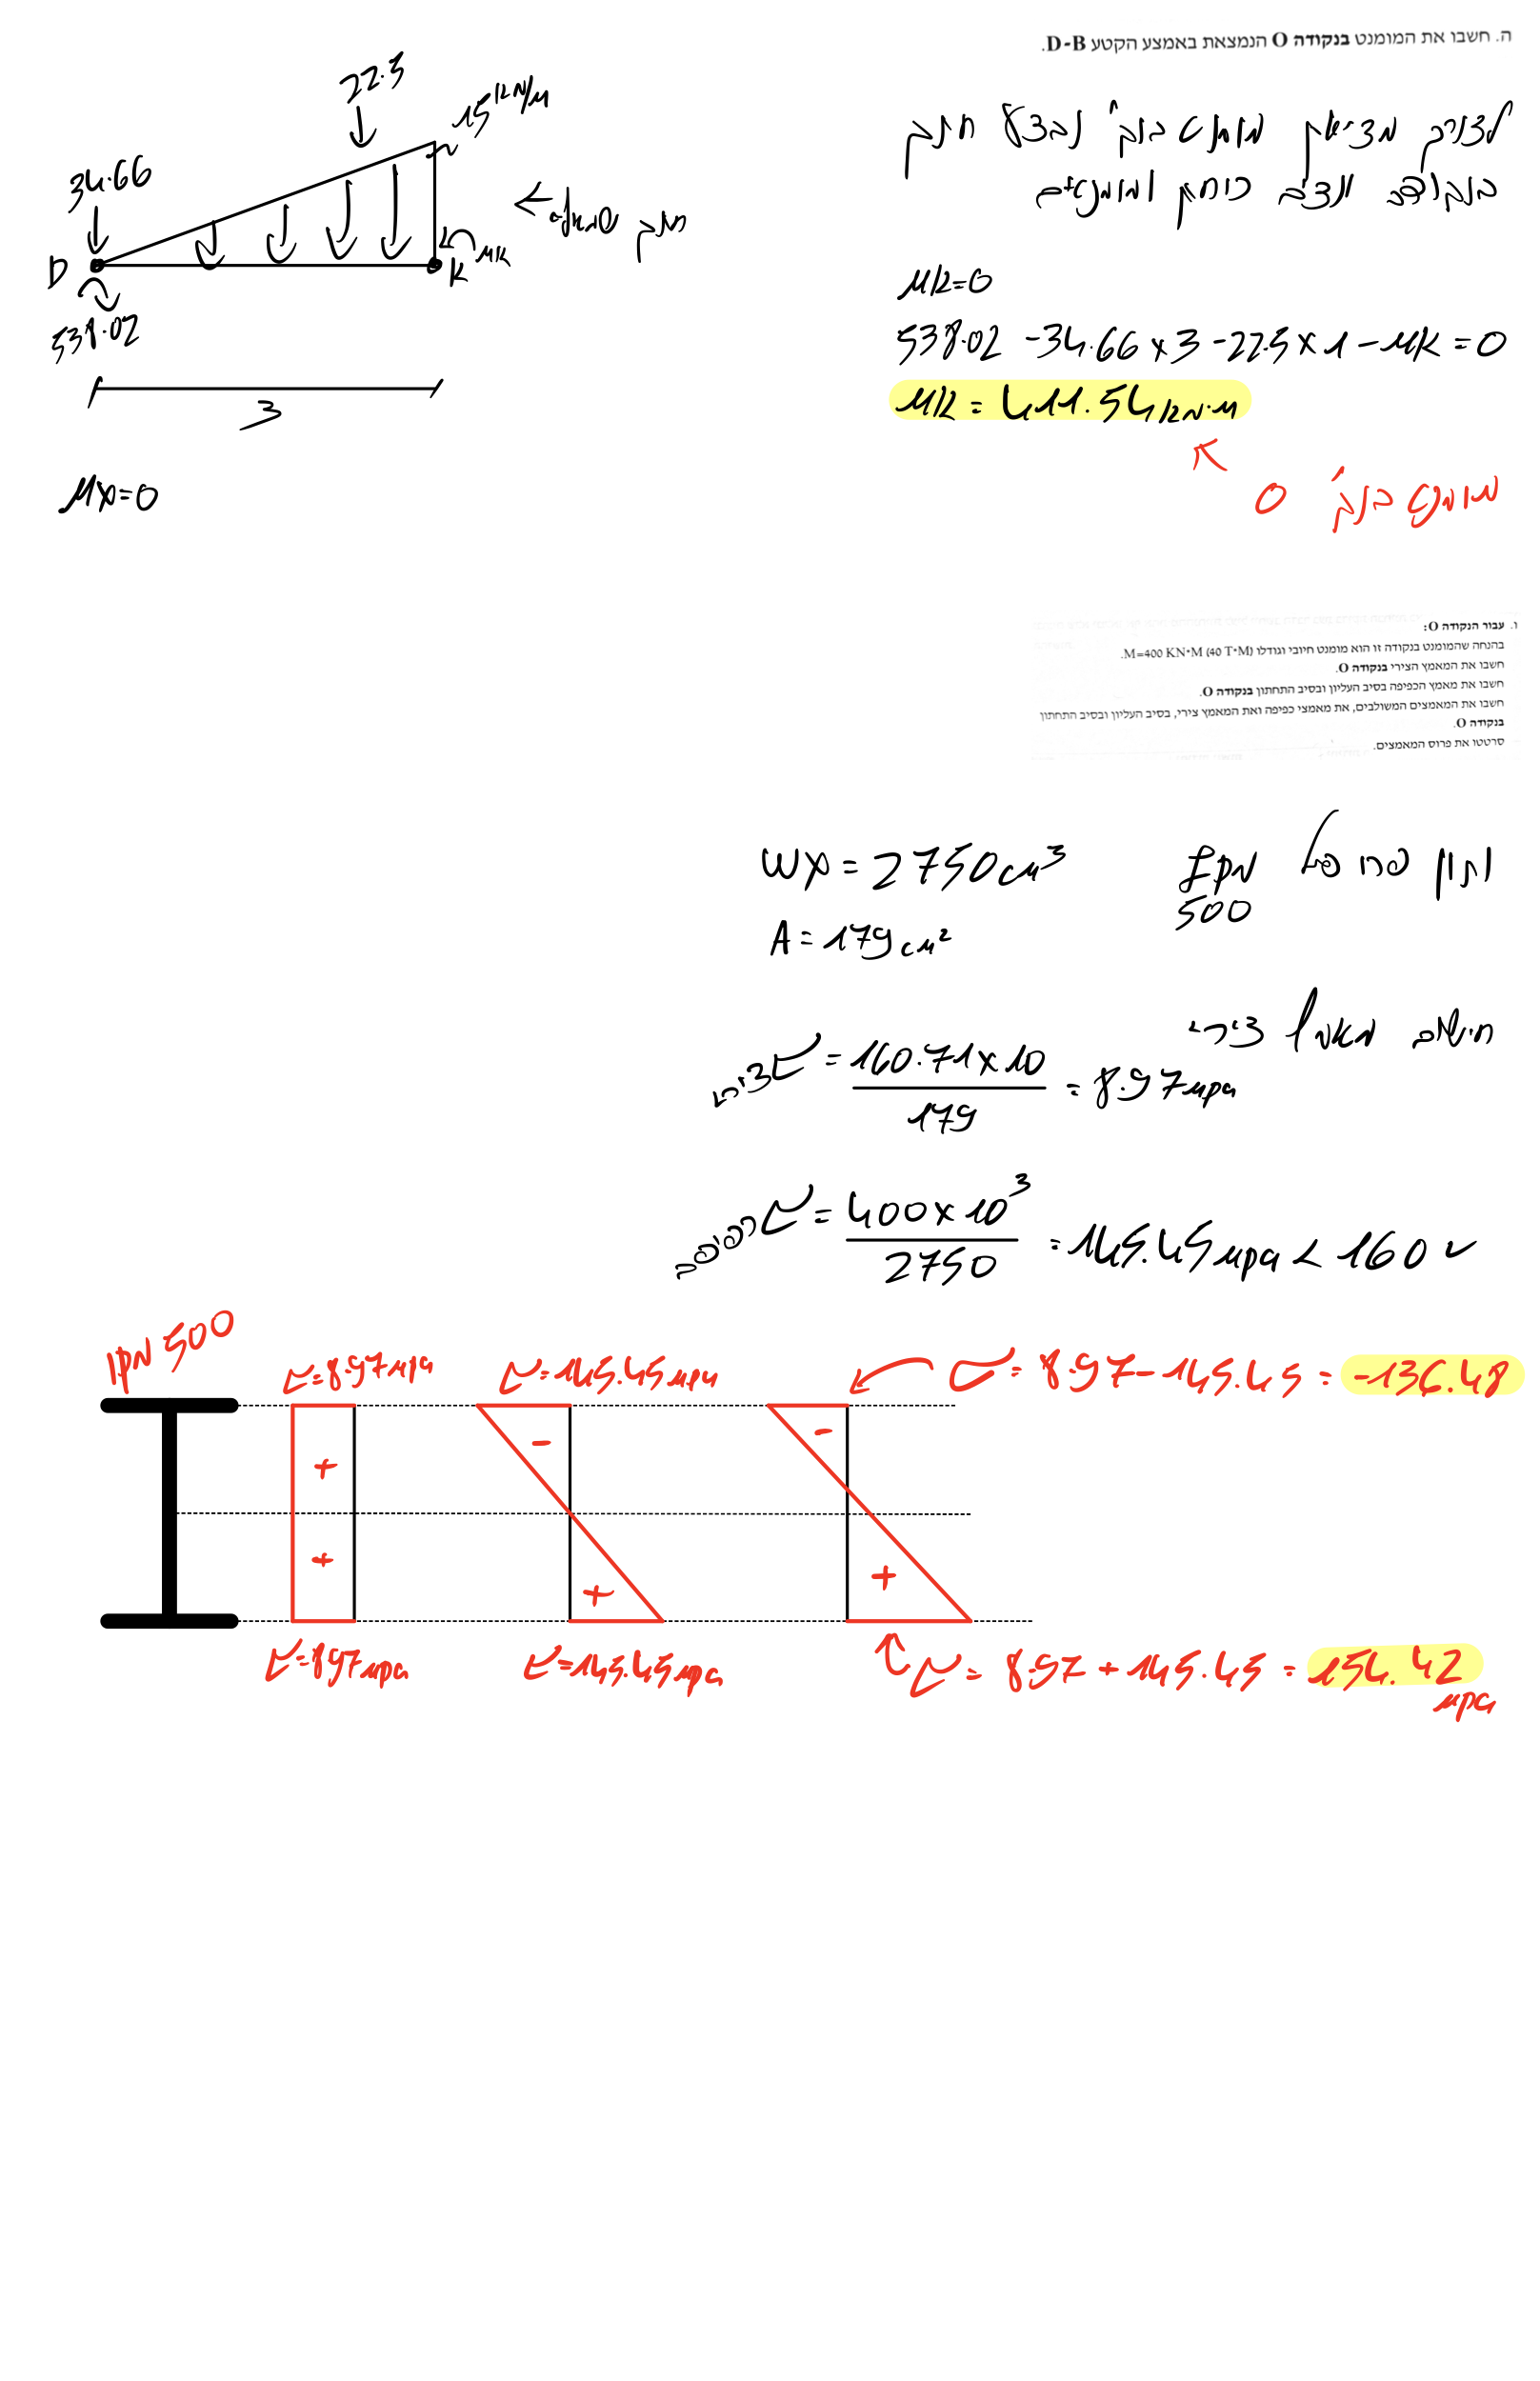 ה. חשבו את המומנט בנקודה O הנמצאת באמצע הקטע D-B.
לצורך מציאת מומנט בנק' נבצע חתך
בנקודה ונציב כוחות ומומנטים
22.5
15 kN/m
34.66
D
K
MK
538.02
3
חתך שמאלי
MK=0
538.02 -34.66 x 3 -22.5 x 1 - MK = 0
MK = 411.54 kN·M
מומנט בנק' O
Mx=0
ו. עבור הנקודה O:
בהנחה שהמומנט בנקודה זו הוא מומנט חיובי וגודלו M=400 KN*M (40 T*M).
חשבו את המאמץ הצירי בנקודה O.
חשבו את מאמץ הכפיפה בסיב העליון ובסיב התחתון בנקודה O.
חשבו את המאמצים המשולבים, את מאמצי כפיפה ואת המאמץ צירי, בסיב העליון ובסיב התחתון
בנקודה O.
סרטטו את פרוס המאמצים.
נתון פרופיל IPN
500
Wx = 2750 cm³
A = 179 cm²
חישוב מאמץ צירי
σ צירי = 160.71 x 10 / 179 = 8.97 MPa
σ כפיפה = 400 x 10³ / 2750 = 145.45 MPa < 160 ✓
IPN 500
σ=8.97 MPa
σ=145.45 MPa
σ = 8.97 - 145.45 = -136.48
-
-
+
+
+
+
σ=8.97 MPa
σ=145.45 MPa
σ = 8.97 + 145.45 = 154.42
MPa